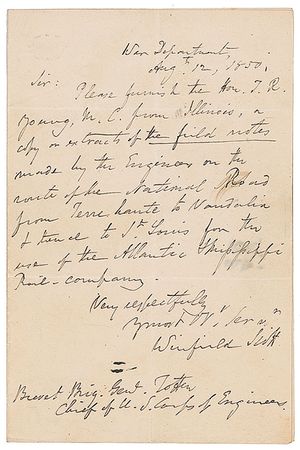 War Department
Augt. 12, 1850.
Sir:
Please furnish the Hon. T. R.
Young, M. C. from Illinois, a
copy or extracts of the field notes
made by the Engineer on the
route of the National Road
from Terre haute to Vandalia
& thence to St. Louis for the
use of the Atlantic & Mississippi
Rail-company.
Very respectfully
yr most ob. ser v.
Winfield Scott
Brevet Brig. Genl. Totten
Chief of U. S. Corps of Engineers.